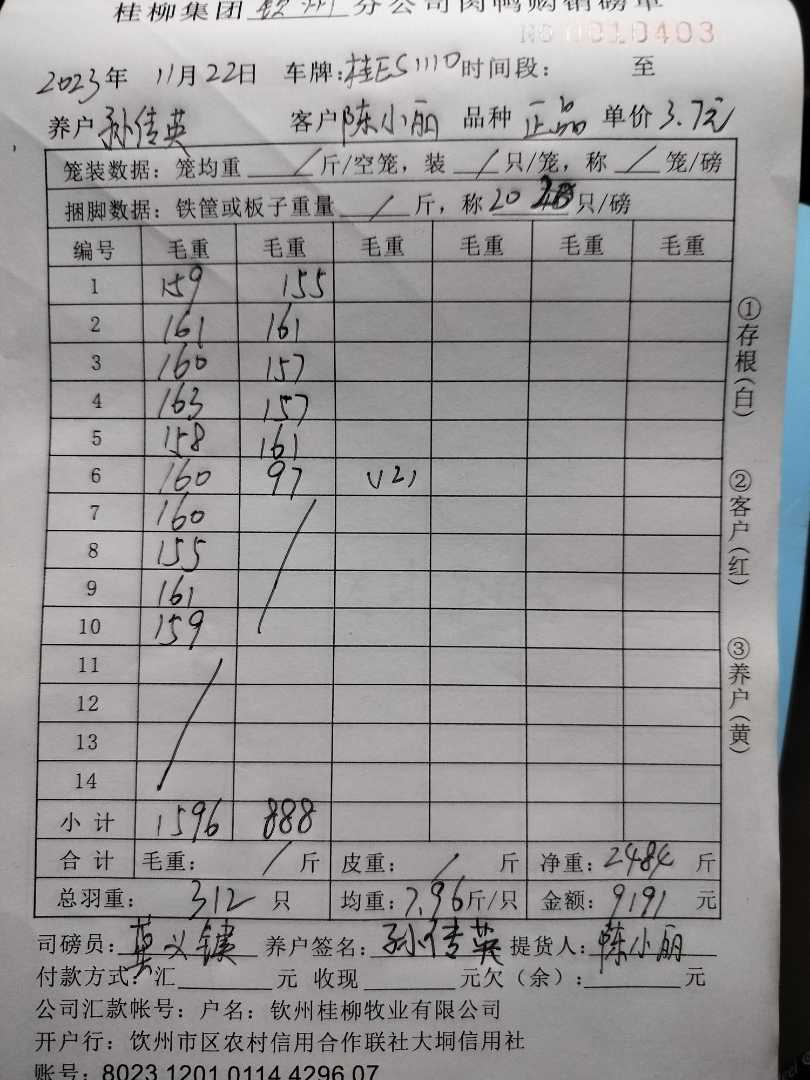 桂柳集团 钦州 分公司肉鸭购销磅单
NO 0010403
2023年 11月22日 车牌:桂ES1110 时间段: 至
养户 孙传英 客户 陈小丽 品种 正品 单价 3.7元
笼装数据: 笼均重 / 斤/空笼, 装 / 只/笼, 称 / 笼/磅
捆脚数据: 铁筐或板子重量 / 斤, 称 20 只/磅
编号 毛重 毛重 毛重 毛重 毛重 毛重
1 159 155
2 161 161
3 160 157
4 163 157
5 158 161
6 160 97
7 160 /
8 155
9 161
10 159
11 /
12
13
14
小计 1596 888
合计 毛重: / 斤 皮重: / 斤 净重: 2484 斤
总羽重: 312 只 均重: 7.96斤/只 金额: 9191 元
司磅员: 莫义 养户签名: 孙传英 提货人: 陈小丽
付款方式: 汇 元 收现 元欠(余): 元
公司汇款帐号: 户名: 钦州桂柳牧业有限公司
开户行: 饮州市区农村信用合作联社大垌信用社
账号: 8023 1201 0114 4296 07
①存根(白)
②客户(红)
③养户(黄)